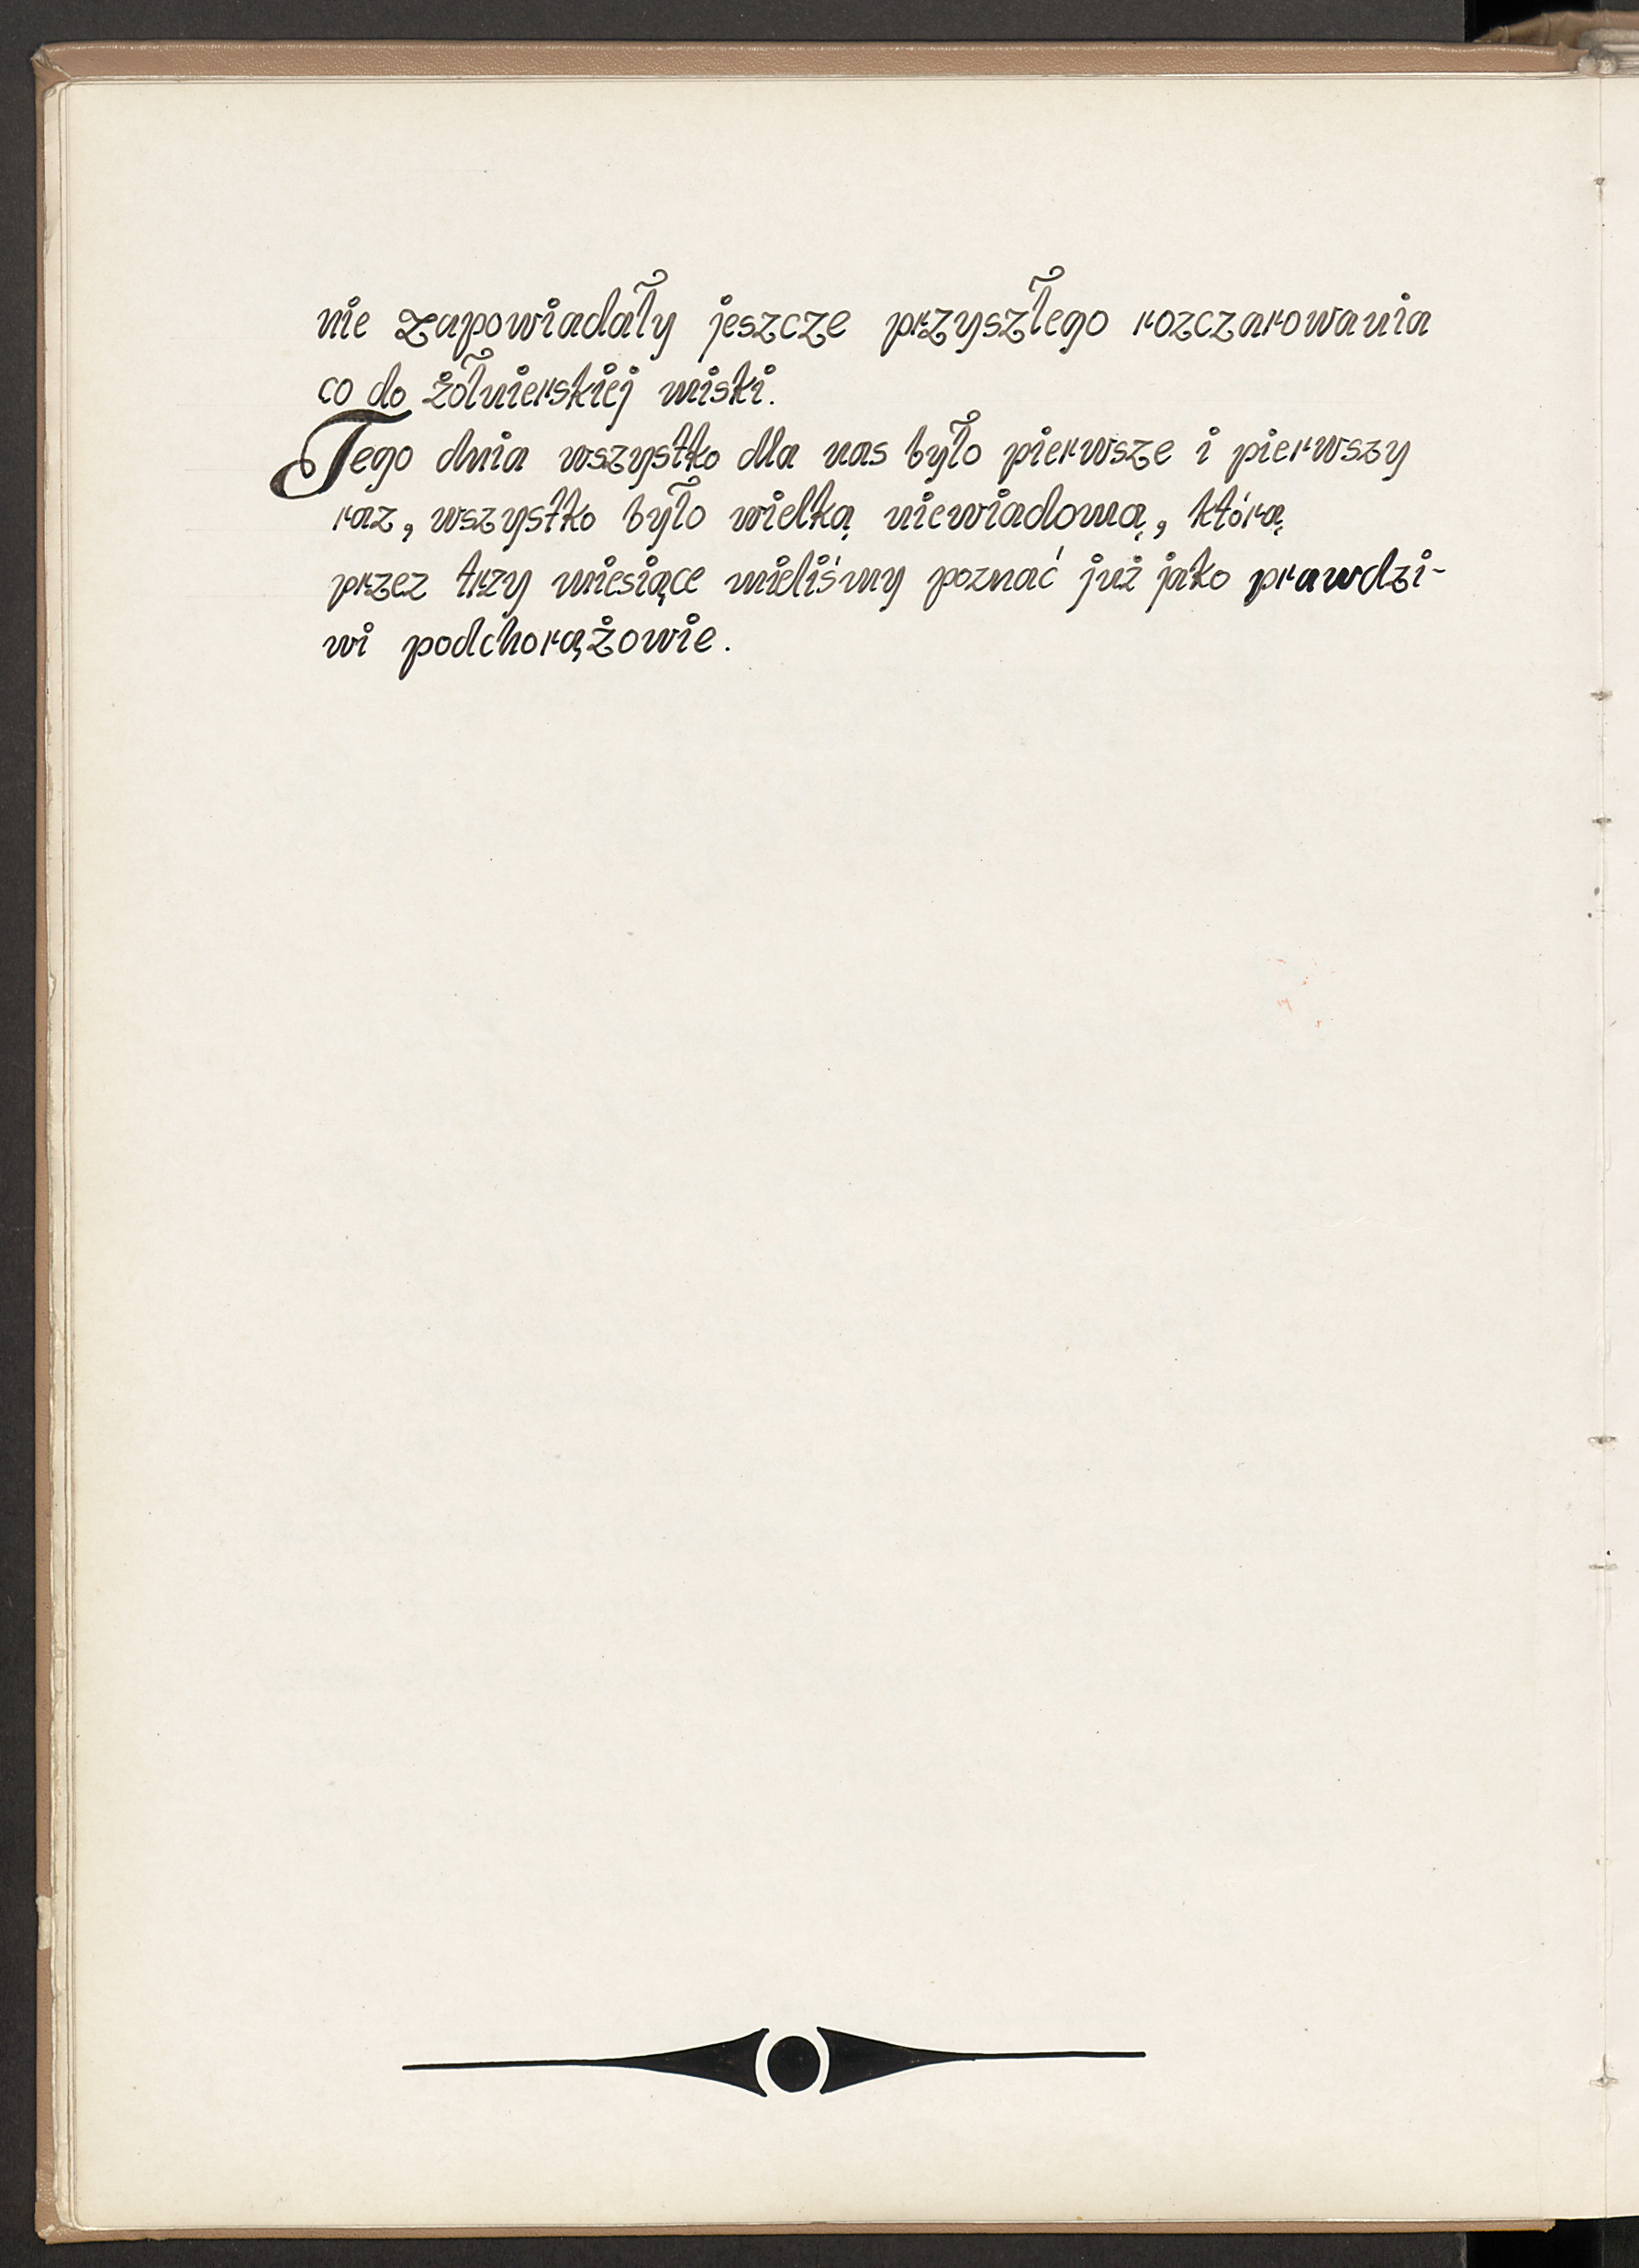 nie zapowiadały jeszcze przyszłego rozczarowania
co do żołnierskiej miski.
Tego dnia wszystko dla nas było pierwsze i pierwszy
raz, wszystko było wielką niewiadomą, którą
przez trzy miesiące mieliśmy poznać już jako prawdzi-
wi podchorążowie.